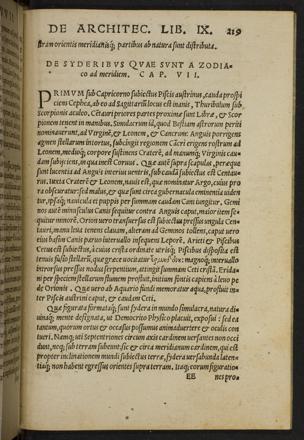 DE ARCHITEC. LIB. IX. 219
stram orientis meridianisq́; partibus ab natura sunt distributa.
DE SYDERIBVS QVAE SVNT A ZODIA-
co ad meridiem. CAP. VII.
PRIMVM sub Capricorno subiectus Piscis austrinus, cauda prospi
ciens Cephea, ab eo ad Sagittariũ locus est inanis, Thuribulum sub
Scorpionis aculeo, Cẽtauri priores partes proximæ sunt Libræ, & Scor
pionem tenent in manibus. Simulacrum id, quod Bestiam astrorum periti
nominauerunt, ad Virginẽ, & Leonem, & Cancrum Anguis porrigens
agmen stellarum intortus, subcingit regionem Cãcri erigens rostrum ad
Leonem, medioq́; corpore sustinens Craterẽ, ad manumq́; Virginis caudam
subijciens, in qua inest Coruus. Quæ autẽ supra scapulas, peræque
sunt lucentia ad Anguis interius uentris, sub cauda subiectus est Centaurus.
Iuxta Craterẽ & Leonem, nauis est, quæ nominatur Argo, cuius prora
obscuratur: sed malus, & quæ sunt circa gubernacula eminentia uiden
tur, ipsaq́; nauicula et puppis per summam caudam Cani iungitur. Gemi
nos autẽ minusculus Canis sequitur contra Anguis caput, maior item sequitur
minorẽ. Orion uero transuersus est subiectus pressus ungula Centauri,
manu læua tenens clauam, alteram ad Geminos tollens, caput uero
eius basim Canis paruo interuallo insequens Leporẽ. Arieti & Piscibus
Cetus est subiectus, à cuius crista ordinate utrisq́; Piscibus disposita est
tenuis fusio stellarũ, quæ græce uocitatur magnoq́; interuallo
introrsus pressus nodus serpentium, attingit summam Ceti cristã. Eridani
per speciem stellarum flumen profluit, initium fontis capiens à læuo pede
Orionis. Quæ uero ab Aquario fundi memoratur aqua, profluit inter
Piscis austrini caput, & caudam Ceti.
Quæ figurata formataq́; sunt sydera in mundo simulacra, natura diuinaq́;
mente designata, ut Democrito Physico placuit, exposui: sed ea
tantum, quorum ortus & occasus possumus animaduertere & oculis contueri.
Namq́; uti Septentriones circum axis cardinem uersantes non occidunt,
neq́; sub terram subeunt, sic & circa meridianum cardinem, qui est
propter inclinationem mundi subiectus terræ, sydera uersabunda latentiaq́;
non habent egressus orientes supra terram. Itaq́; eorum figuratio-
EE nes pro-